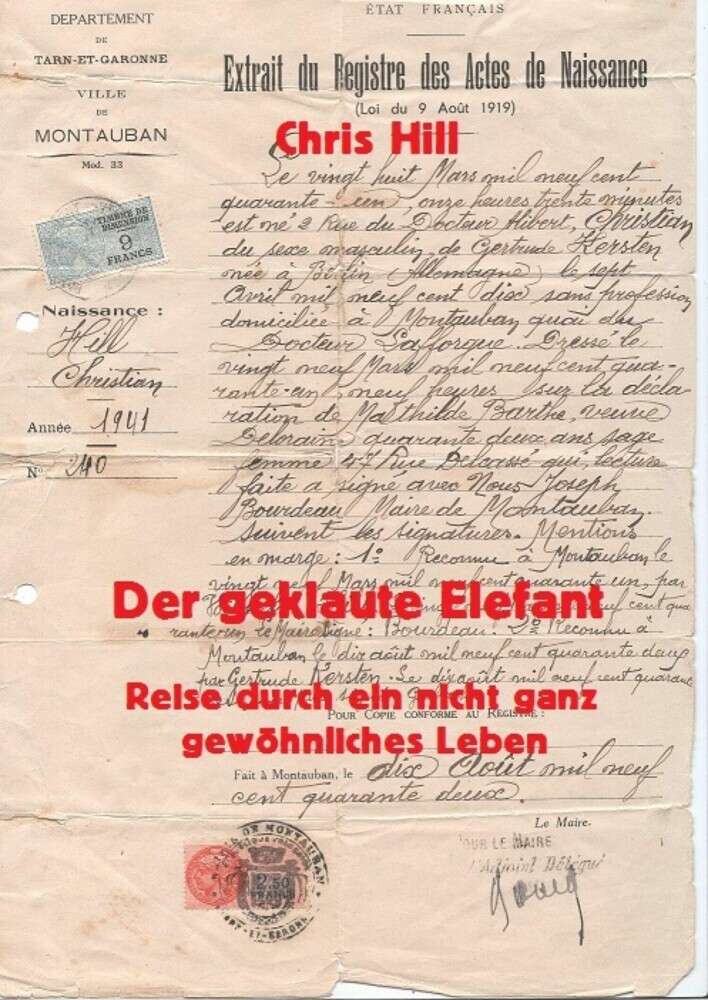 DEPARTEMENT
DE
TARN-ET-GARONNE
VILLE
DE
MONTAUBAN
Mod. 33
TIMBRE DE
DIMENSION
9
FRANCS
Naissance :
Hill
Christian
Année 1941
N° 240
ÉTAT FRANÇAIS
Extrait du Registre des Actes de Naissance
(Loi du 9 Août 1919)
Chris Hill
Le vingt huit Mars mil neuf cent
quarante-un, onze heures trente minutes
est né 2 Rue du Docteur Alibert, Christian
du sexe masculin, de Gertrude Kersten
née à Berlin (Allemagne) le sept
Avril mil neuf cent dix sans profession
domiciliée à Montauban quai du
Docteur Lafforgue. Dressé le
vingt neuf Mars mil neuf cent qua-
rante-un neuf heures sur la décla
ration de Mathilde Barthe, veuve
Deloraine quarante deux ans sage
femme 47 Rue Delcassé qui, lecture
faite a signé avec Nous Joseph
Bourdeau Maire de Montauban.
Suivent les signatures. Mentions
en marge : 1° Reconnu à Montauban le
vingt neuf Mars mil neuf cent quarante un, par
Der geklaute Elefant
cent qua
rante un le Maire signé : Bourdeau : 2° Reconnu à
Montauban le dix août mil neuf cent quarante deux
par Gertrude Kersten. Le dix août mil neuf cent quarante
Reise durch ein nicht ganz
POUR COPIE CONFORME AU REGISTRE :
gewöhnliches Leben
Fait à Montauban, le dix Août mil neuf
cent quarante deux.
Le Maire.
POUR LE MAIRE
l'Adjoint Délégué
DE MONTAUBAN
2.50
FRANCS
ET-GARONNE